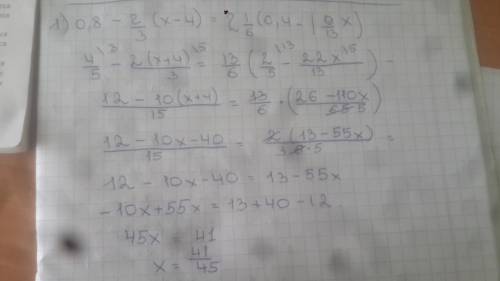 1) 0,8 - 2/3 (x-4) = 2 1/6 (0,4 - 1 9/13 x)
4/5 \3 - 2(x+4)/3 \5 = 13/6 (2/5 \13 - 22x/13 \5) -
12 - 10(x+4)/15 = 13/6 · (26 - 110x/65 5)
12 - 10x - 40/15 = 2(13 - 55x)/3 6·5 =
12 - 10x - 40 = 13 - 55x
-10x + 55x = 13 + 40 - 12
45x = 41
x = 41/45